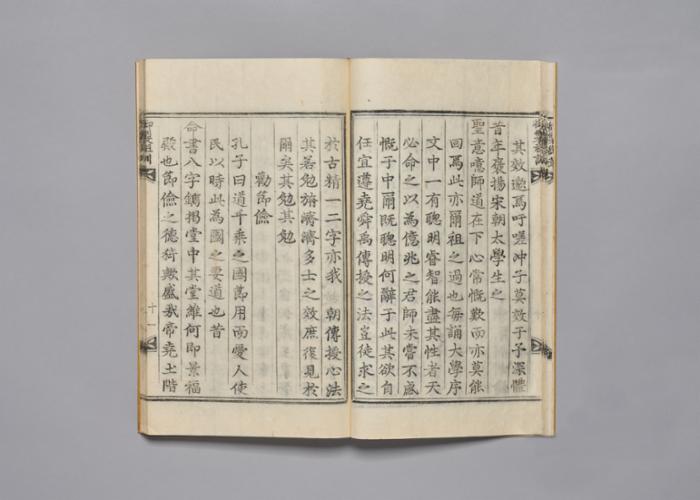 其效邈焉吁嗟冲子莫效于予深體
昔年褒揚宋朝太學生之
聖意噫師道在下心常慨歎而亦莫能
回焉此亦爾祖之過也每誦大學序
文中一有聰明睿智能盡其性者天
必命之以爲億兆之君師未嘗不感
慨于中爾既聰明何辭于此其欲自
任宜遵堯舜禹傳授之法豈徒求之
於古精一二字亦我 朝傳授心法
其若勉旃濟濟多士之效庶復見於
爾矣其勉其勉
勸節儉
孔子曰道千乘之國節用而愛人使
民以時此爲國之要道也昔
命書八字鐫揭堂中其堂維何即景福
殿也節儉之德猗歟盛哉帝堯土階
十一